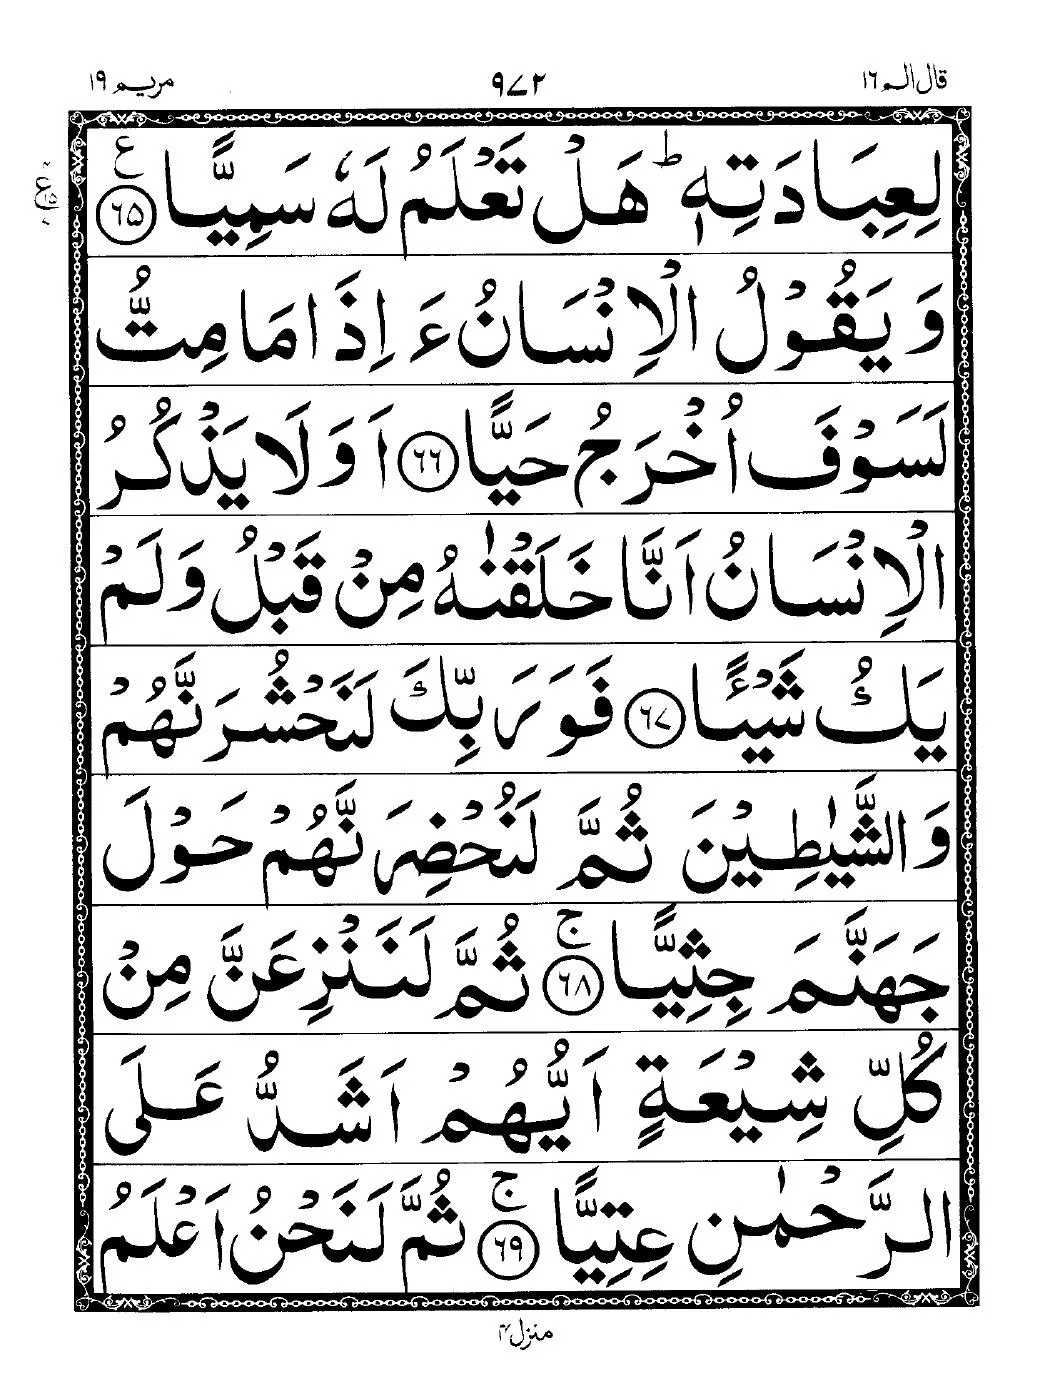 قال الم ١٦
٩٧٢
مريم ١٩
لِعِبَادَتِهٖ ؕ هَلْ تَعْلَمُ لَهٗ سَمِيًّا ۝٦٥ ع
وَ يَقُوْلُ الْاِنْسَانُ ءَ اِذَا مَا مِتُّ
لَسَوْفَ اُخْرَجُ حَيًّا ۝٦٦ اَ وَ لَا يَذْكُرُ
الْاِنْسَانُ اَنَّا خَلَقْنٰهُ مِنْ قَبْلُ وَ لَمْ
يَكُ شَيْـًٔا ۝٦٧ فَوَ رَبِّكَ لَنَحْشُرَنَّهُمْ
وَ الشَّيٰطِيْنَ ثُمَّ لَنُحْضِرَنَّهُمْ حَوْلَ
جَهَنَّمَ جِثِيًّا ۝٦٨ ۚ ثُمَّ لَنَنْزِعَنَّ مِنْ
كُلِّ شِيْعَةٍ اَيُّهُمْ اَشَدُّ عَلَى
الرَّحْمٰنِ عِتِيًّا ۝٦٩ ۚ ثُمَّ لَنَحْنُ اَعْلَمُ
منزل ٤